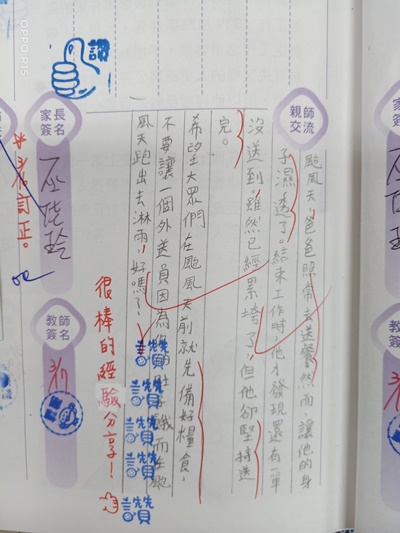 讚
親師交流
颱風天,爸爸照常去送餐,然而,讓他的身
子濕透了。結束工作時,他才發現還有一單
沒送到。雖然已經累垮了,但他卻堅持送
完。
希望大眾們在颱風天前就先備好糧食,
不要讓一個外送員因為你的肚子餓而在颱
風天跑出去淋雨!好嗎?
很棒的經驗分享!
讚
讚
讚
讚
讚
家長簽名
巫佳玲
教師簽名
訂正。
OPPO R15